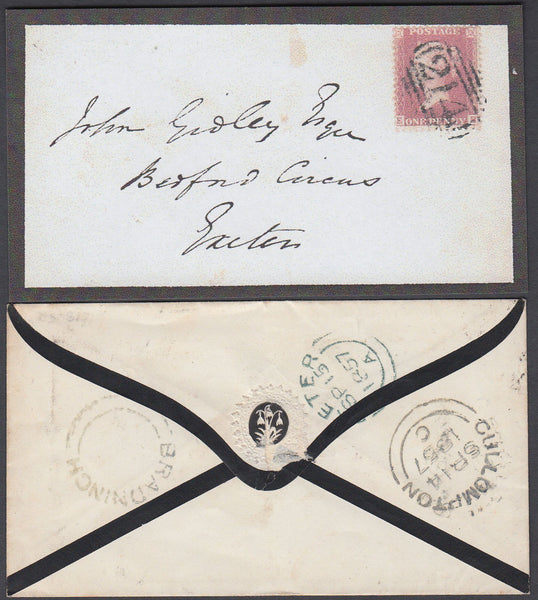 POSTAGE
ONE PENNY
John Gidley Esqre
Bedford Circus
Exeter
ETER
SP 15
1857
A
BRADNINCH
CULLOMPTON
SP 14
1857
C